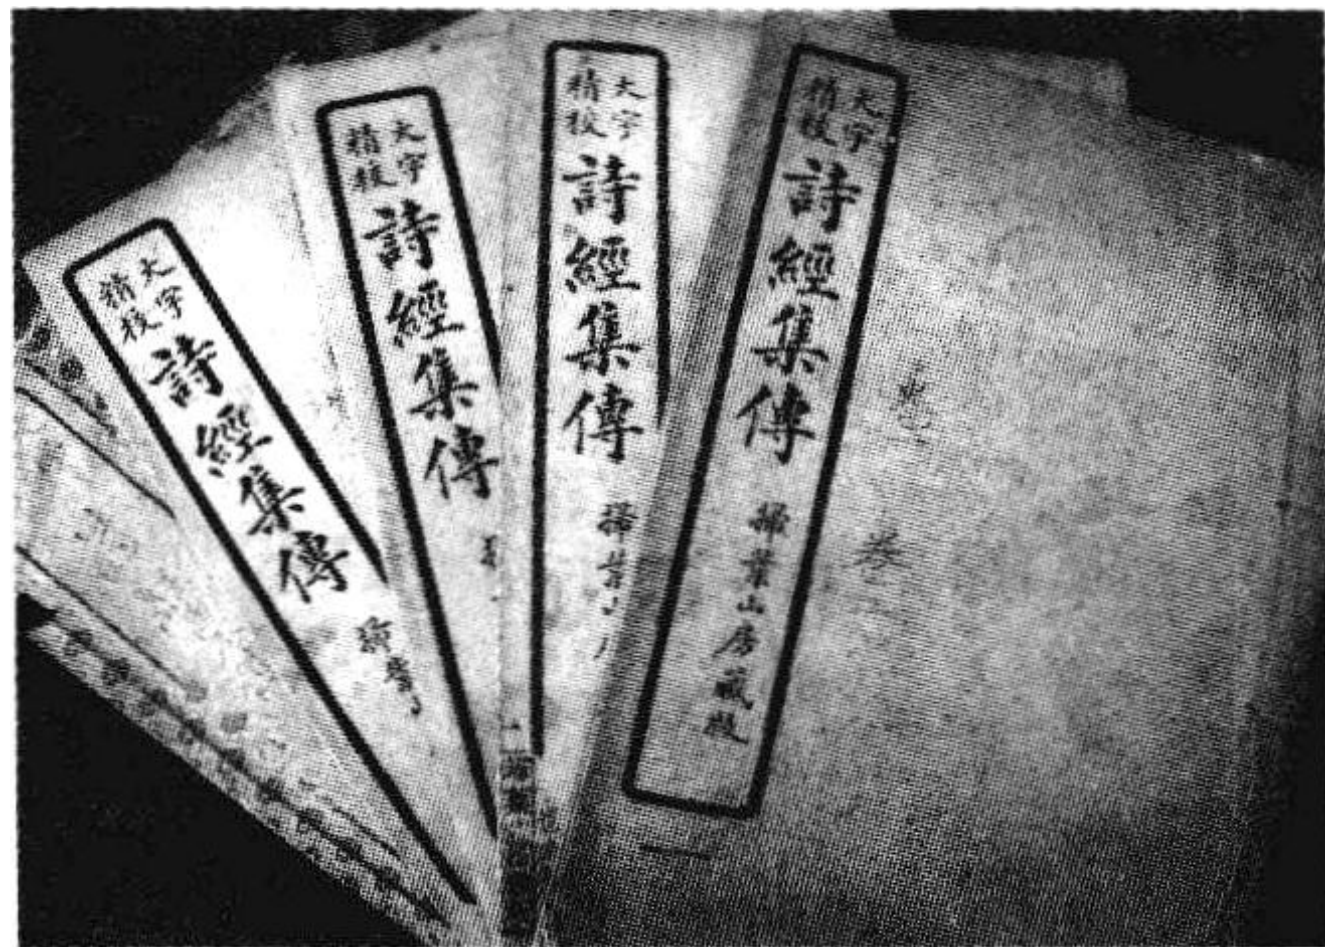 大字
精校
詩經集傳
掃葉山房藏板
卷
大字
精校
詩經集傳
掃葉山
大字
精校
詩經集傳
大字
精校
詩經集傳
掃葉